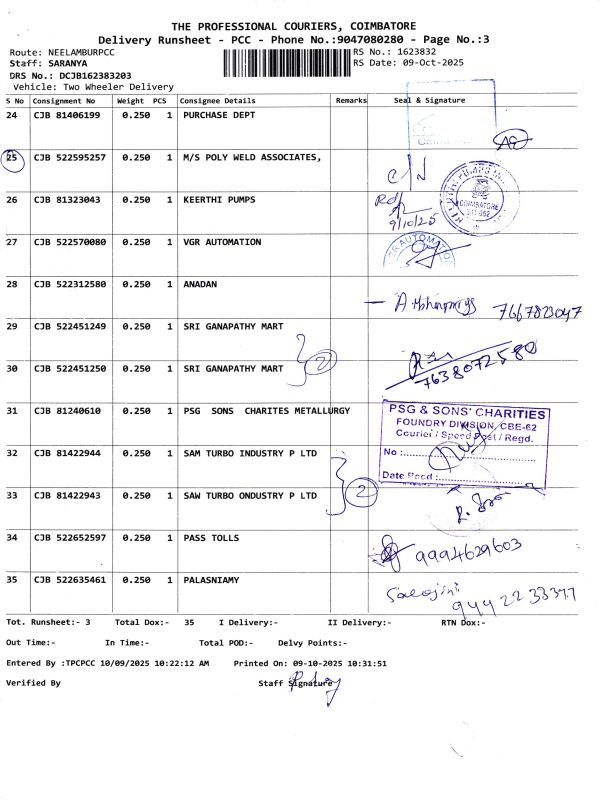 THE PROFESSIONAL COURIERS, COIMBATORE
Delivery Runsheet - PCC - Phone No.:9047080280 - Page No.:3
Route: NEELAMBURPCC RS No.: 1623832
Staff: SARANYA RS Date: 09-Oct-2025
DRS No.: DCJB162383203
Vehicle: Two Wheeler Delivery
S No Consignment No Weight PCS Consignee Details Remarks Seal & Signature
24 CJB 81406199 0.250 1 PURCHASE DEPT
25 CJB 522595257 0.250 1 M/S POLY WELD ASSOCIATES,
C/N
26 CJB 81323043 0.250 1 KEERTHI PUMPS
9/10/25
COIMBATORE
641 062
27 CJB 522570080 0.250 1 VGR AUTOMATION
28 CJB 522312580 0.250 1 ANADAN
7667823047
29 CJB 522451249 0.250 1 SRI GANAPATHY MART
2
30 CJB 522451250 0.250 1 SRI GANAPATHY MART
7638072580
31 CJB 81240610 0.250 1 PSG SONS CHARITES METALLURGY
PSG & SONS' CHARITIES
FOUNDRY DIVISION, CBE-62
Courier / Speed Post / Regd.
No :
Date Recd :
32 CJB 81422944 0.250 1 SAM TURBO INDUSTRY P LTD
2
33 CJB 81422943 0.250 1 SAW TURBO ONDUSTRY P LTD
34 CJB 522652597 0.250 1 PASS TOLLS
9994629603
35 CJB 522635461 0.250 1 PALASNIAMY
Sarojini
Tot. Runsheet:- 3 Total Dox:- 35 I Delivery:- II Delivery:- RTN Dox:-
Out Time:- In Time:- Total POD:- Delvy Points:-
Entered By :TPCPCC 10/09/2025 10:22:12 AM Printed On: 09-10-2025 10:31:51
Verified By Staff Signature